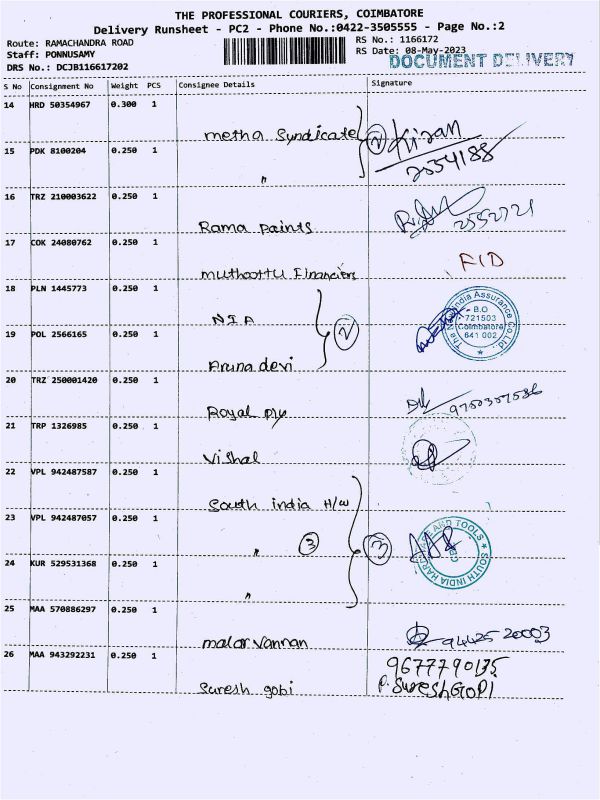 THE PROFESSIONAL COURIERS, COIMBATORE
Delivery Runsheet - PC2 - Phone No.:0422-3505555 - Page No.:2
Route: RAMACHANDRA ROAD
RS No.: 1166172
Staff: PONNUSAMY
RS Date: 08-May-2023
DOCUMENT DELIVERY
DRS No.: DCJB116617202
S No Consignment No Weight PCS Consignee Details Signature
14 HRD 50354967 0.300 1
metha Syndicate 2 Kiran
15 PDK 8100204 0.250 1
" 2554188
16 TRZ 210003622 0.250 1
Rama Paints 2552721
17 COK 24080762 0.250 1
muthoottu Financiers FID
18 PLN 1445773 0.250 1
NIA 2
India Assurance Co.Ltd
B.O
721503
Coimbatore
641 002
19 POL 2566165 0.250 1
Aruna devi
20 TRZ 250001420 0.250 1
Royal Ply 9750357586
21 TRP 1326985 0.250 1
Vishal
22 VPL 942487587 0.250 1
South india H/W
23 VPL 942487057 0.250 1
" 3 3
SOUTH INDIA HARDWARE AND TOOLS
24 KUR 529531368 0.250 1
"
25 MAA 570886297 0.250 1
malar vannan 94425 20003
26 MAA 943292231 0.250 1
9677790135
Suresh gobi P.SureshGOPI